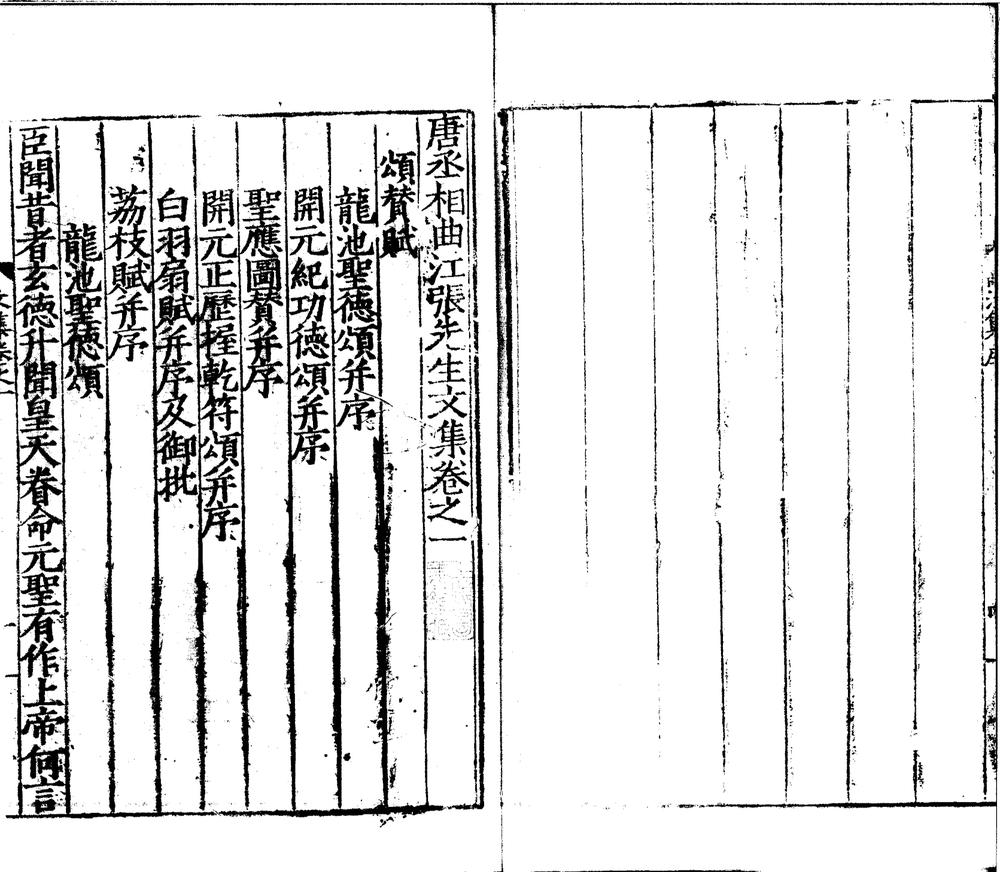 唐丞相曲江張先生文集卷之一
頌賛賦
龍池聖德頌并序
開元紀功德頌并序
聖應圖賛并序
開元正歷握乾符頌并序
白羽扇賦并序及御批
荔枝賦并序
龍池聖德頌
臣聞昔者玄德升聞皇天眷命元聖有作上帝何言